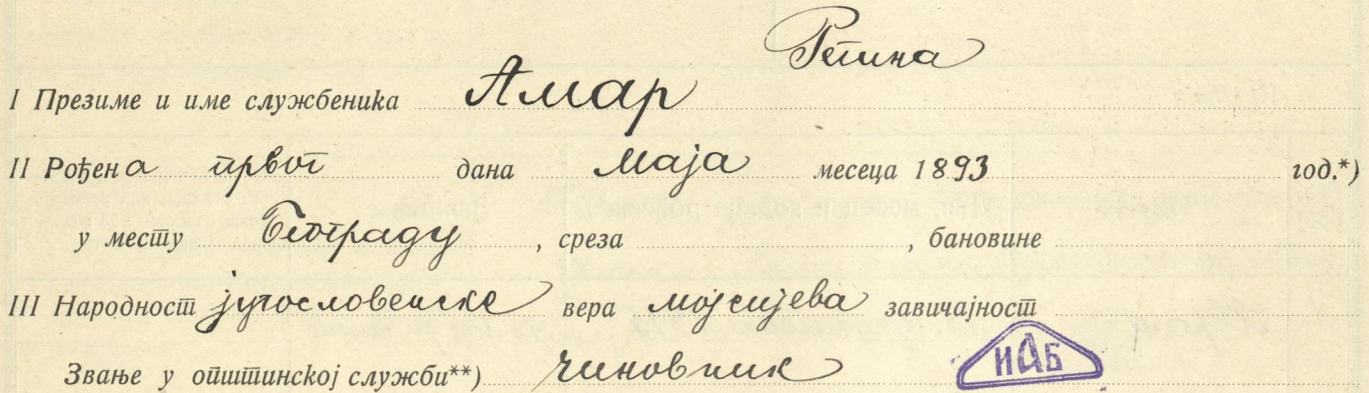 Регина
I Презиме и име службеника Амар
II Рођена првог дана маја месеца 1893 год.*)
у месту Београду, среза , бановине
III Народност југословенске вера мојсијева завичајност
Звање у општинској служби**) чиновник
ИАБ